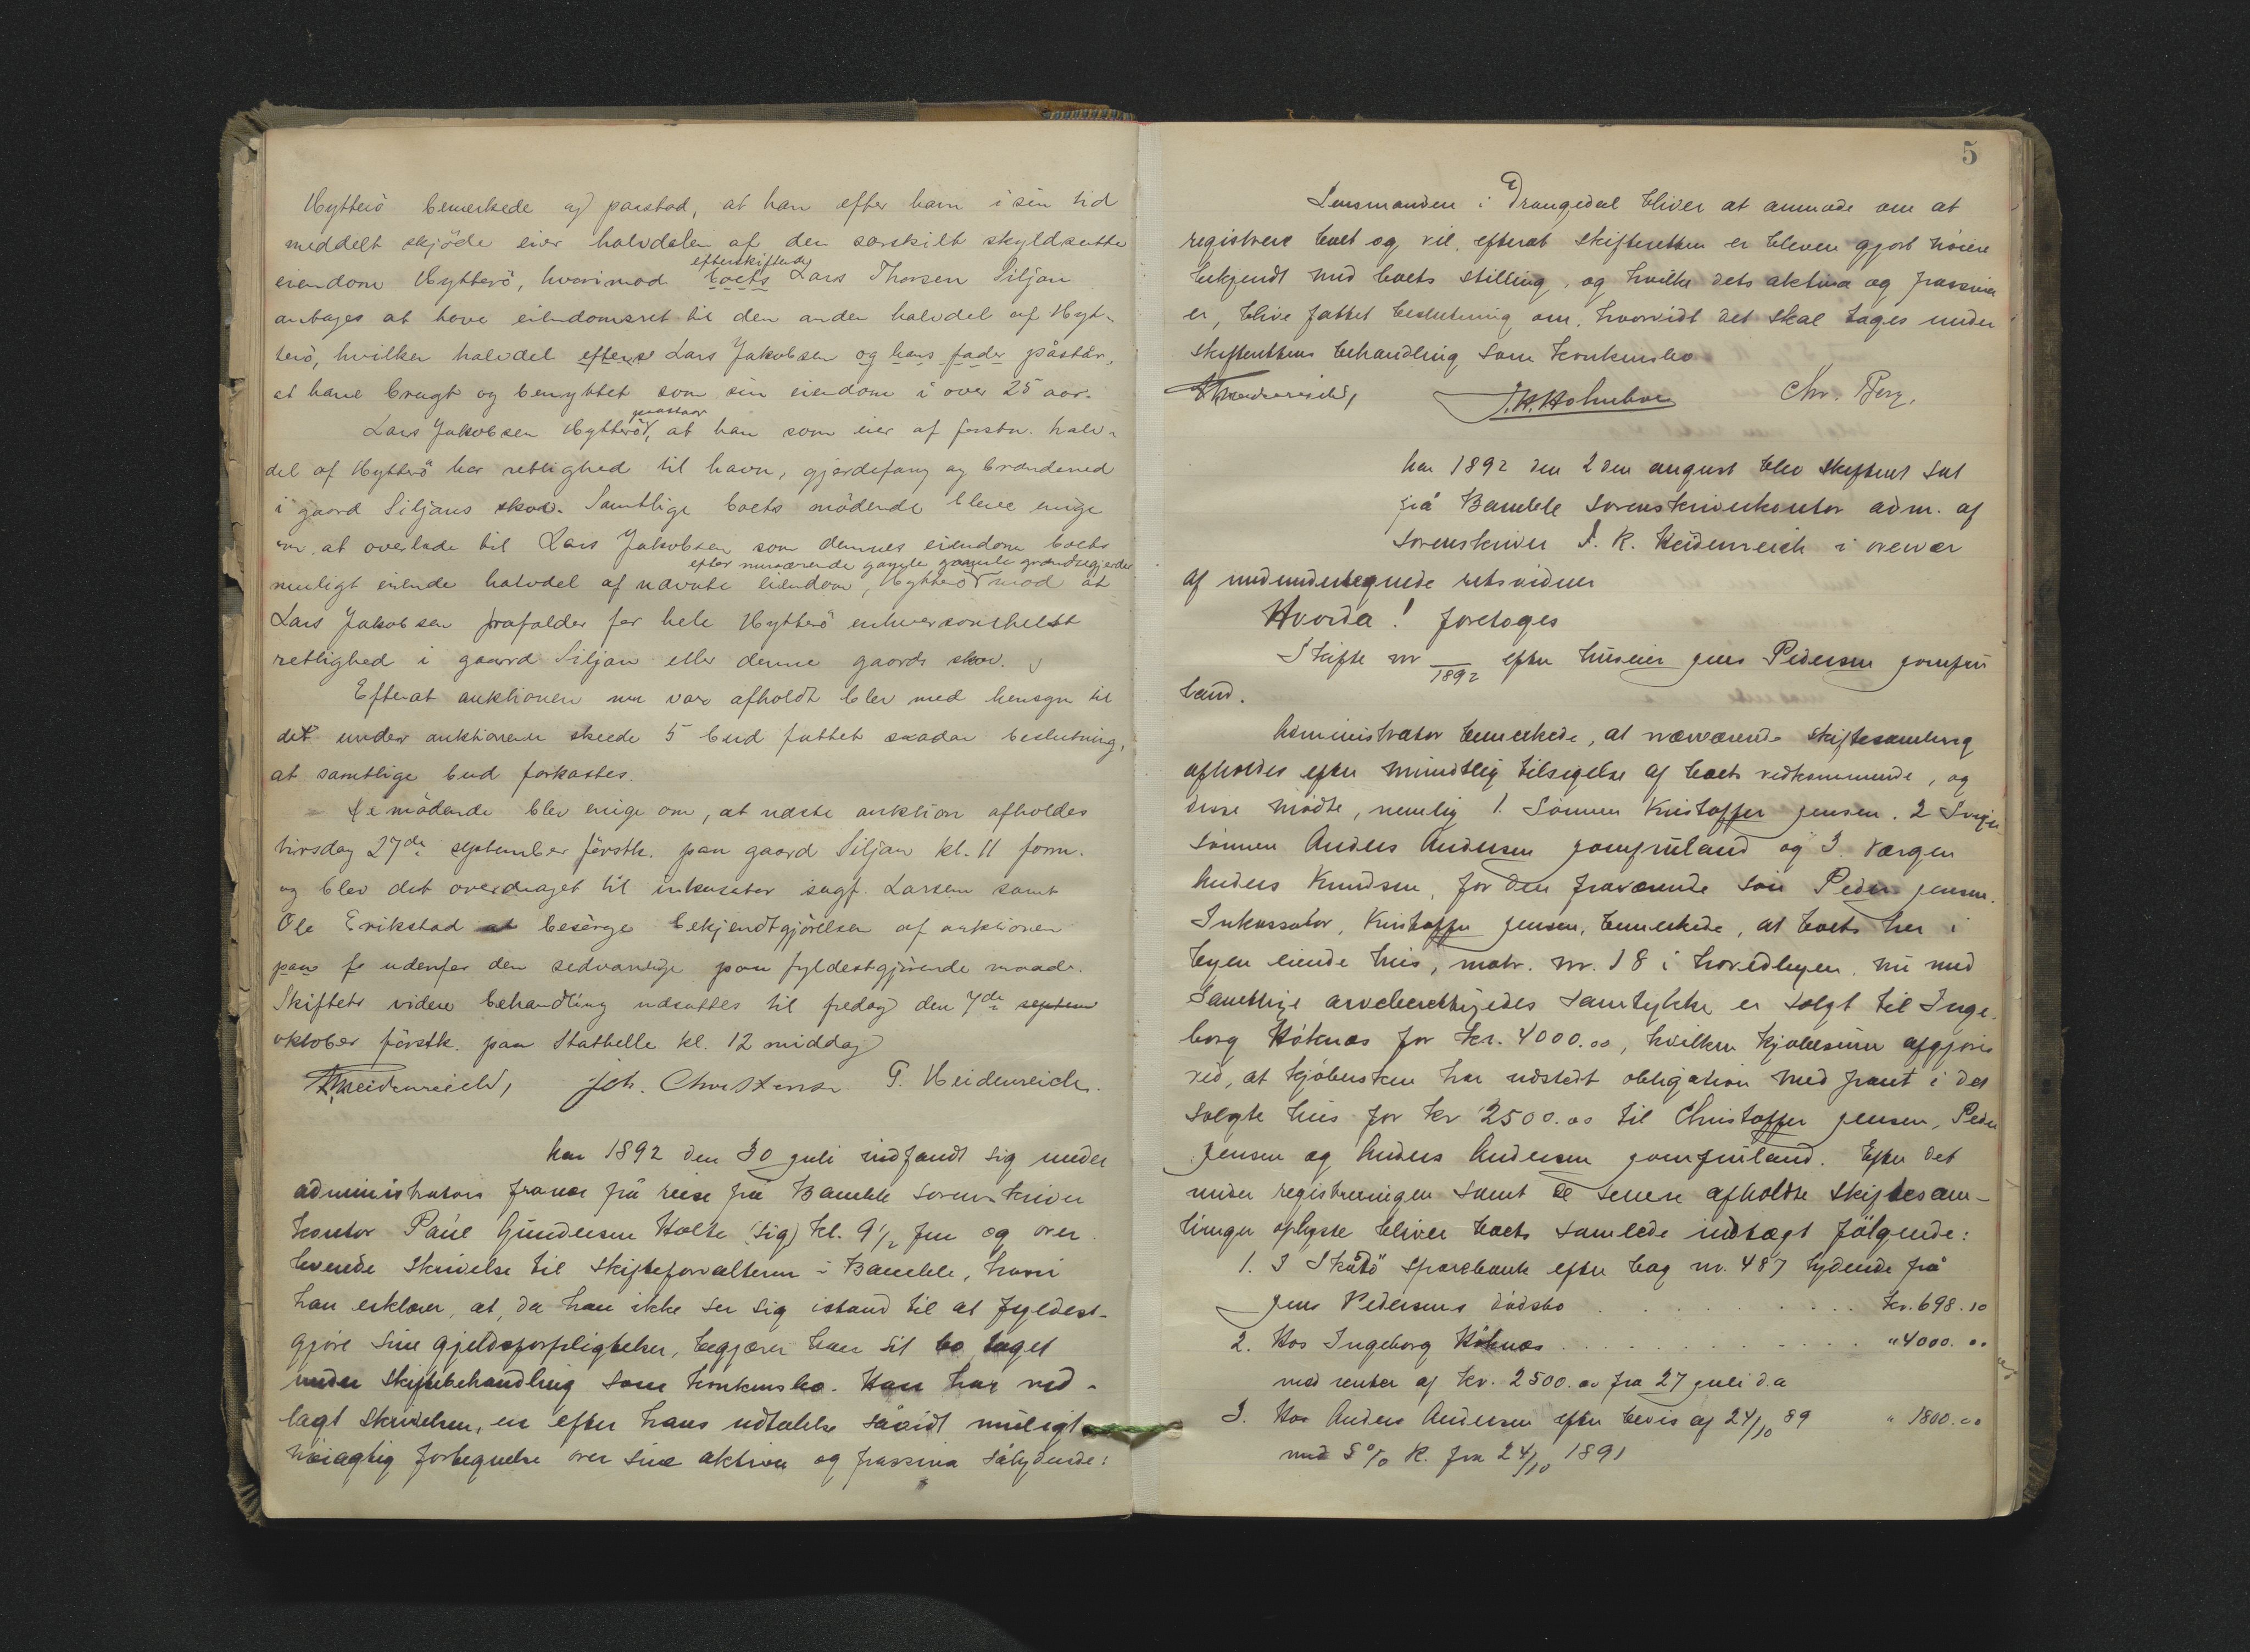 Hytterö bemerkede og paastod, at han efter ham i sin tid
meddelt skjöde eier halvdelen af den særskilt skyldsatte
efterskiftera
eiendom Hytterö, hvorimod boets Lars Thorsen Siljan
antages at have eiendomsret til den anden halvdel af Hyt-
terö, hvilken halvdel Lars Jakobsen og hans fader påstår,
at have brugt og benyttet som sin eiendom i over 25 aar.
paastaar
Lars Jakobsen Hytterö, at han som eier af förstn. halv-
del af Hytterö har rettighed til havn, gjærdefang og brændeved
i gaard Siljans skov. Samtlige boets mödende bleve enige
om at overlade til Lars Jakobsen som dennes eiendom boets
efter nuværende gamle gamle grændsegjerder
muligt eiende halvdel af nævnte eiendom, Hytterö mod at
Lars Jakobsen frafalder for hele Hytterö enhversomhelst
rettighed i gaard Siljan eller denne gaards skov.
Efterat auktionen nu var afholdt blev med hensyn til
det under auktionen skeede 5 bud fattet saadan beslutning,
at samtlige bud forkastes.
De mödende blev enige om, at næste auktion afholdes
tirsdag 27de september förstk. paa gaard Siljan kl. 11 form.
og blev det overdraget til inkassator sagf. Larsen samt
Ole Erikstad at besörge bekjendtgjörelsen af auktionen
paa udenfor den sedvanlige paa fyldestgjörende maade.
Skiftets videre behandling udsattes til fredag den 7de septem
oktober förstk. paa Stathelle kl. 12 middag
Heidenreich, Joh. Christensen P. Heidenreich.
Aar 1892 den 30 juli indfandt sig under
administrators fravær på reise på Bamble sorenskriver
kontor Paul Gundersen Holte (sig) kl. 9 1/2 fm og over
leverede skrivelse til skifteforvalteren i Bamble, hvori
han erklærer, at, da han ikke ser sig istand til at fyldest-
gjöre sine gjeldsforpligtelser, begjærer han sit bo taget
under skiftebehandling som konkursbo. Han har ved-
lagt skrivelsen, en efter hans udtalelse såvidt muligt
nöiagtig fortegnelse over sine aktiva og passiva sålydende:
5
Lensmanden i Drangedal bliver at anmode om at
registrere boet og vil, efterat skifteretten er bleven gjort nöiere
bekjendt med boets stilling, og hvilke dets aktiva og passiva
er, blive fattet beslutning om, hvorvidt det skal tages under
skifterettens behandling som konkursbo
Heidenreich, J. H. Holmboe Chr. Berg,
Aar 1892 den 2den august blev skifteret sat
på Bamble sorenskriverkontor adm. af
sorenskriver S. K. Heidenreich i overvær
af medundertegnede retsvidner
Hvorda! foretoges
Skifte nr — 1892 efter huseier Jens Pedersen Jomfru
land.
Administrator bemerkede, at nærværende skiftesamling
afholdes efter mundtlig tilsigelse af boets vedkommende, og
disse mödte, nemlig 1. Sönnen Kristoffer Jensen. 2 Sviger
sönnen Anders Andersen Jomfruland og 3. Værgen
Anders Knudsen, for den fraværende sön Peder Jensen.
Inkassator, Kristoffer Jensen, bemerkede, at boets her i
byen eiende hus, matr. nr. 18 i hovedbyen. nu med
samtlige arveberettigedes samtykke er solgt til Inge-
borg Höknæs for kr. 4000.00, hvilken kjöbesum afgjöres
ved, at kjöbersken har udstedt obligation med pant i det
solgte hus for kr 2500.00 til Christoffer Jensen, Peder
Jensen og Anders Andersen Jomfruland. Efter det
under registreringen samt de senere afholdte skiftesam-
linger oplyste bliver boets samlede indtægt fölgende:
1. I Skåtö sparebank efter bog nr. 487 lydende på
Jens Pedersens dödsbo . . . . . kr. 698.10
2. Hos Ingeborg Höknæs . . . . . " 4000.00
med renter af kr. 2500.00 fra 27 juli d.a
3. Hos Anders Andersen efter bevis af 24/10 89 " 1800.00
med 5 % R. fra 24/10 1891